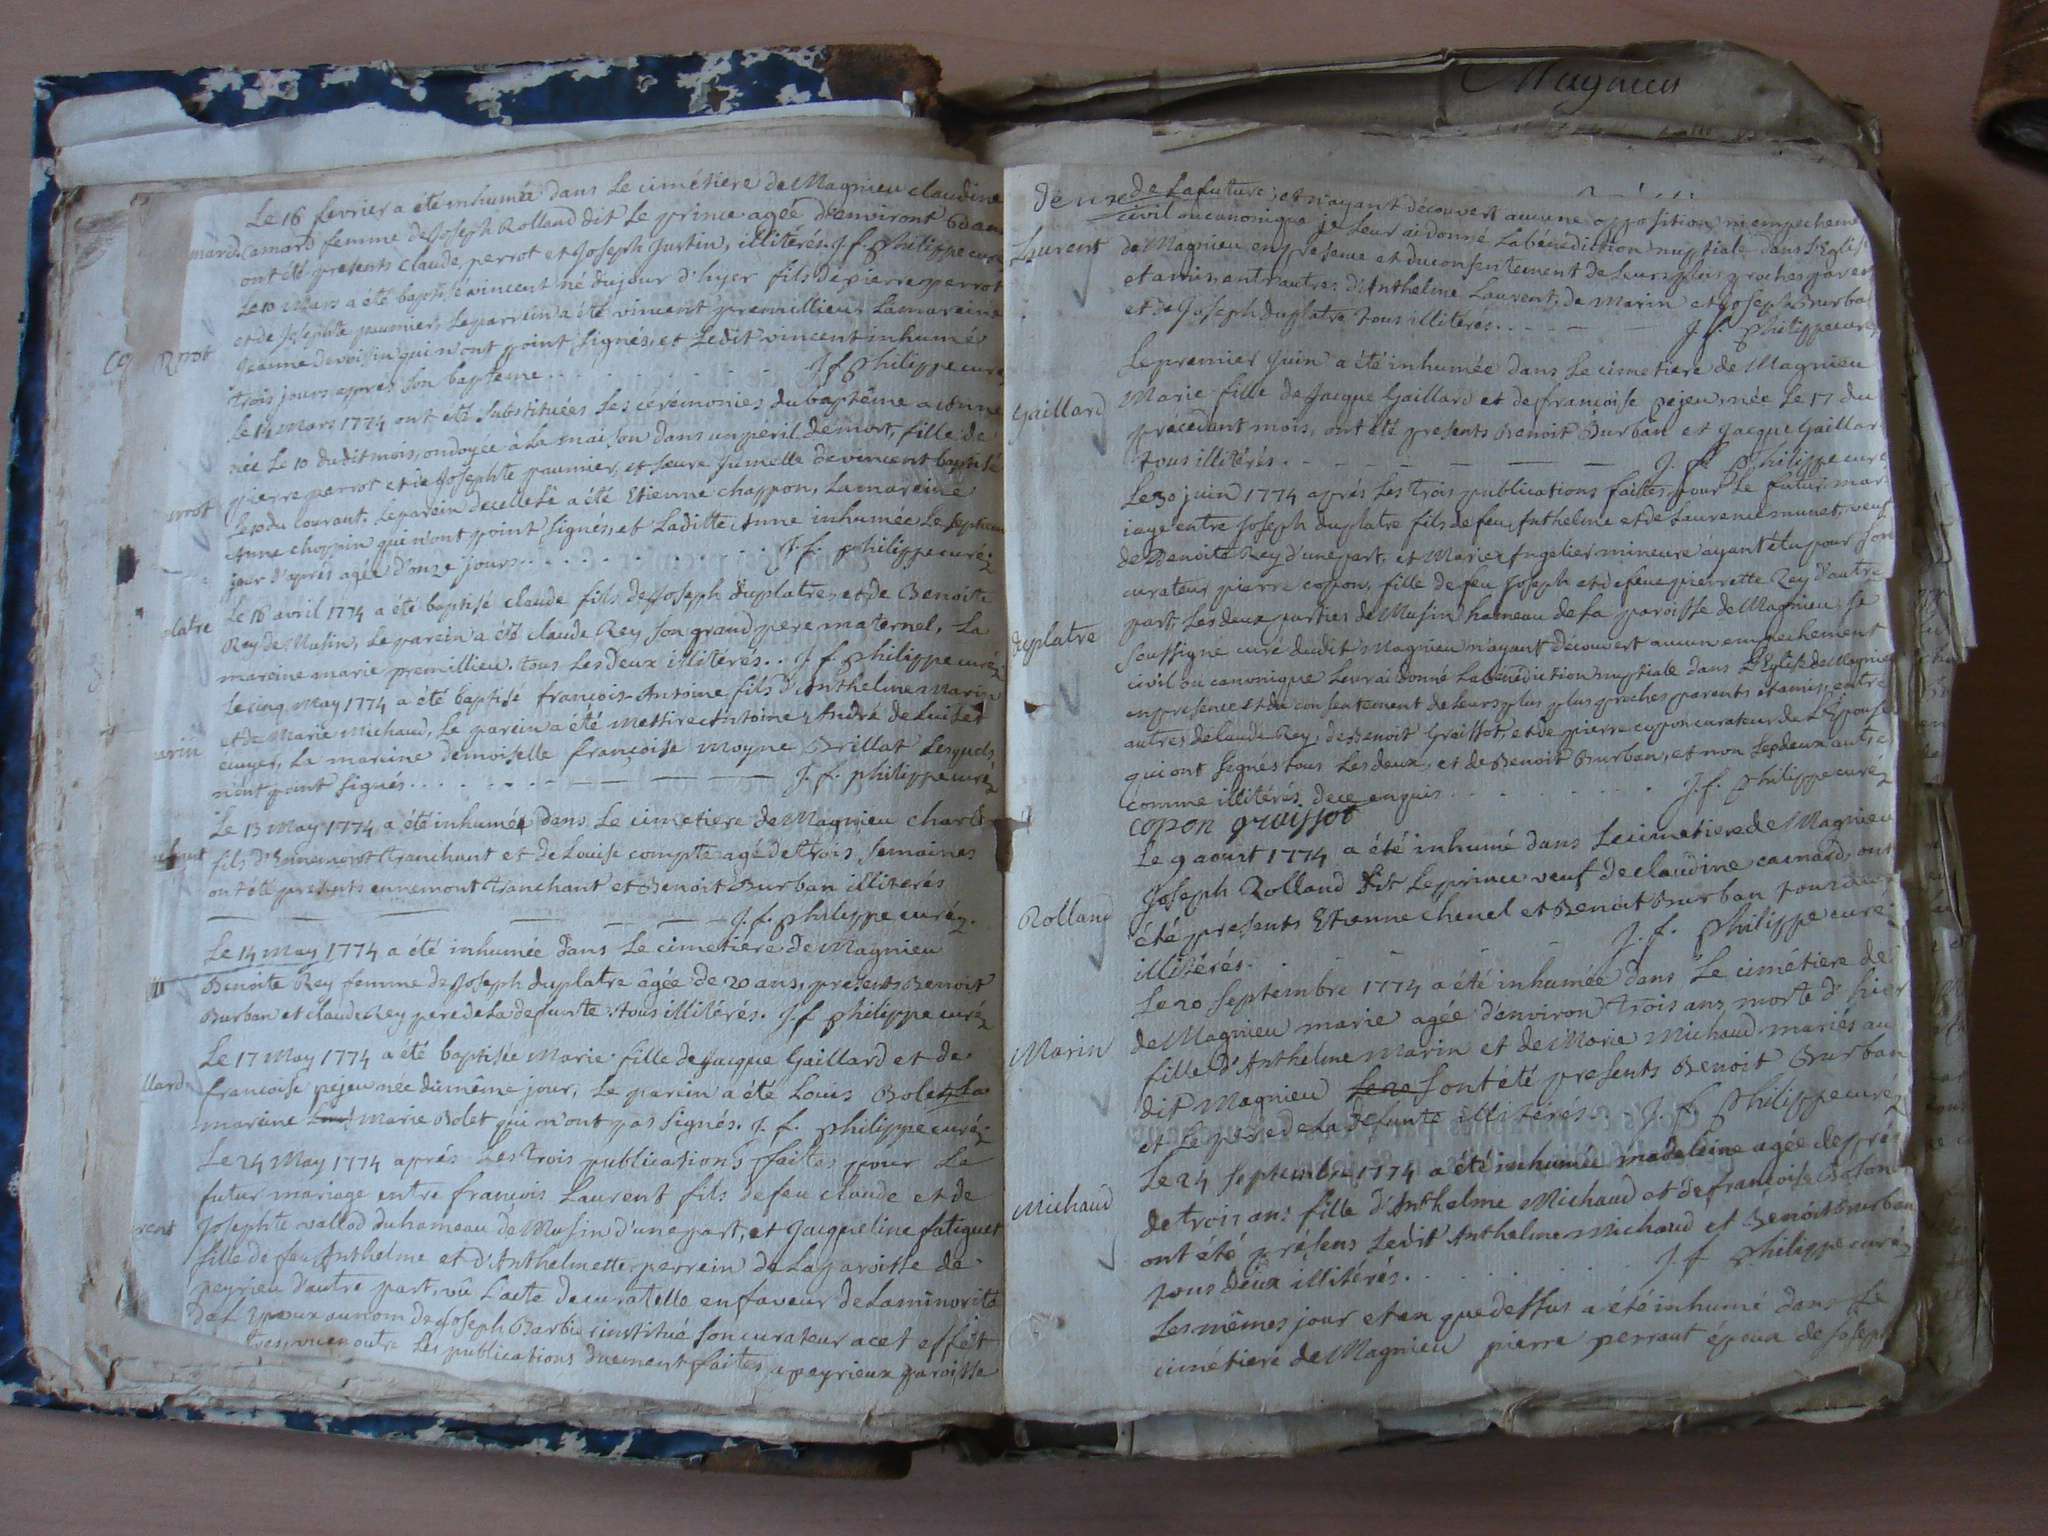 Le 16 fevrier a été inhumée dans Le cimétiere de Magnieu claudine
Camard femme de Joseph Rolland dit Le prince agée d'environt 60 ans
ont été presents claude perrot et Joseph Justin, illitérés. J. f. philippe curé
Le 10 Mars a été baptisé vincent né du jour d'hyer fils de pierre perrot
et de Josephte paumier, Le parrein a été vincent premillieu Lamareine
Jeanne devoisin qui n'ont point signés, et Ledit vincent inhumé
trois jours après son bapteme . . . . . . J f philippe curé
Le 14 Mars 1774 ont été substituées Les cérémonies du baptême a anne
née Le 10 dudit mois, ondoyée a La maison dans un peril de mort, fille de
pierre perrot et de Josephte paumier, et soeure Jumelle de vincent baptisé
Le 10 du courant. Le parein d'icelle a été Etienne chappon, Lamareine
Anne choppin qui n'ont point signés, et Laditte Anne inhumée Le septieme
jour d'après agée d'onze jours . . . . . . . J. f. philippe curé
Le 16 avril 1774 a été baptisé claude fils de Joseph duplatre et de Benoite
Rey de Musin, Le parein a été claude Rey son grand pere maternel, La
mareine marie premillieu. tous Les deux illitérés . . J. f. philippe curé
Le cinq May 1774 a été baptisé françois-Antoine fils d'Anthelme Marin
et de Marie Michaud, Le parein a été Messire Antoine André de Luiset
ecuyer, La mareine demoiselle françoise moyne Brillat Lesquels
n'ont point signés . . . . . . — — — J. f. philippe curé
Le 13 May 1774 a été inhumé dans Le cimetiere de Magnieu charle
fils d'Ennemont tranchant et de Louise compte agé de trois semaines
ont été presents ennemont tranchant et Benoit Burban illiterés
— — — — — — J. f. philippe curé.
Le 14 May 1774 a été inhumée dans Le cimetiere de Magnieu
Benoite Rey femme de Joseph duplatre âgée de 20 ans, presents Benoit
Burban et claude Rey pere de La defunte tous illitérés. J. f philippe curé
Le 17 May 1774 a été baptisée Marie fille de Jacque Gaillard et de
francoise pejeu née du même jour, Le parein a été Louis Bolet, La
mareine Marie Bolet qui n'ont pas signés. J. f. philippe curé
Le 24 May 1774 après Les trois publications faites pour Le
futur mariage entre françois Laurent fils de feu claude et de
Josephte vallod du hameau de Musin d'une part, et Jacqueline fatiguet
fille de feu Anthelme et d'Anthelmette perrein de La paroisse de
peyrieu d'autre part, vû L'acte de curatelle en faveur de La minorité
de L'Epoux au nom de Joseph Barbin institué son curateur a cet effet
Les publications duement faites a peyrieux paroisse
mard
perrot
rrot
platre
arin
chant
llard
rent
Magnieu
de La future, et n'ayant découvert aucune opposition, ni empechement
civil ou canonique je Leur ai donné La bénédiction nuptiale dans L'Eglise
de Magnieu en presence et du consentement de Leurs plus proches parens
et amis, entr'autres d'Anthelme Laurent, de Marin et Joseph Burban
et de Joseph duplatre tous illitérés . . . . — — J. f. philippe curé
Le premier Juin a été inhumée dans Le cimetiere de Magnieu
Marie fille de Jacque Gaillard et de francoise pejeu née Le 17 du
précédant mois, ont été presents Benoit Burban et Jacque Gaillard
tous illitérés . — — — — — — J. f. philippe curé
Le 30 juin 1774 après Les trois publications faites pour Le futur mar
iage entre Joseph duplatre fils de feu Anthelme et de Laurence munet, veuf
de Benoite Rey d'une part, et Marie Angelier mineure ayant élu pour son
curateur pierre copon, fille de feu Joseph et de feue pierrette Rey d'autre
part Les deux parties de Musin hameau de La paroisse de Magnieu, Je
soussigné curé dudit Magnieu n'ayant découvert aucun empechement
civil ou canonique Leur ai donné La bénédiction nuptiale dans L'Eglise de Magnieu
en presence et du consentement de Leurs plus plus proches parents et amis, entre
autres de claude Rey, de Benoit Graissot, et de pierre copon curateur de L'Epouse
qui ont signés tous Les deux, et de Benoit Burban, et non Les deux autre
comme illitérés de ce enquis . . . . . . . J. f. philippe curé
copon graissot
Le 9 aoust 1774 a été inhumé dans Le cimetiere de Magnieu
Joseph Rolland dit Le prince veuf de claudine camard, ont
été presents Etienne chenel et Benoit Burban tous deux
illitérés. . . . — — — J. f. philippe curé
Le 20 Septembre 1774 a été inhumée dans Le cimétiere de
de Magnieu marie agée d'environ trois ans morte d'hier
fille d'Anthelme Marin et de Marie Michaud mariés au
dit Magnieu Le 20 sont été presents Benoit Burban
et Le pere de La defunte illiterés. J. f philippe curé
Le 24 septembre 1774 a été inhumée madeleine agée de près
de trois ans fille d'Anthelme Michaud et de françoise
ont été présens Ledit Anthelme Michaud et Benoit Burban
tous deux illitérés. . . . . . . . . J. f philippe curé
Les mêmes jour et an que dessus a été inhumé dans Le
cimétiere de Magnieu pierre perraut époux de Joseph
Laurent
Gaillard
duplatre
Rolland
Marin
Michaud